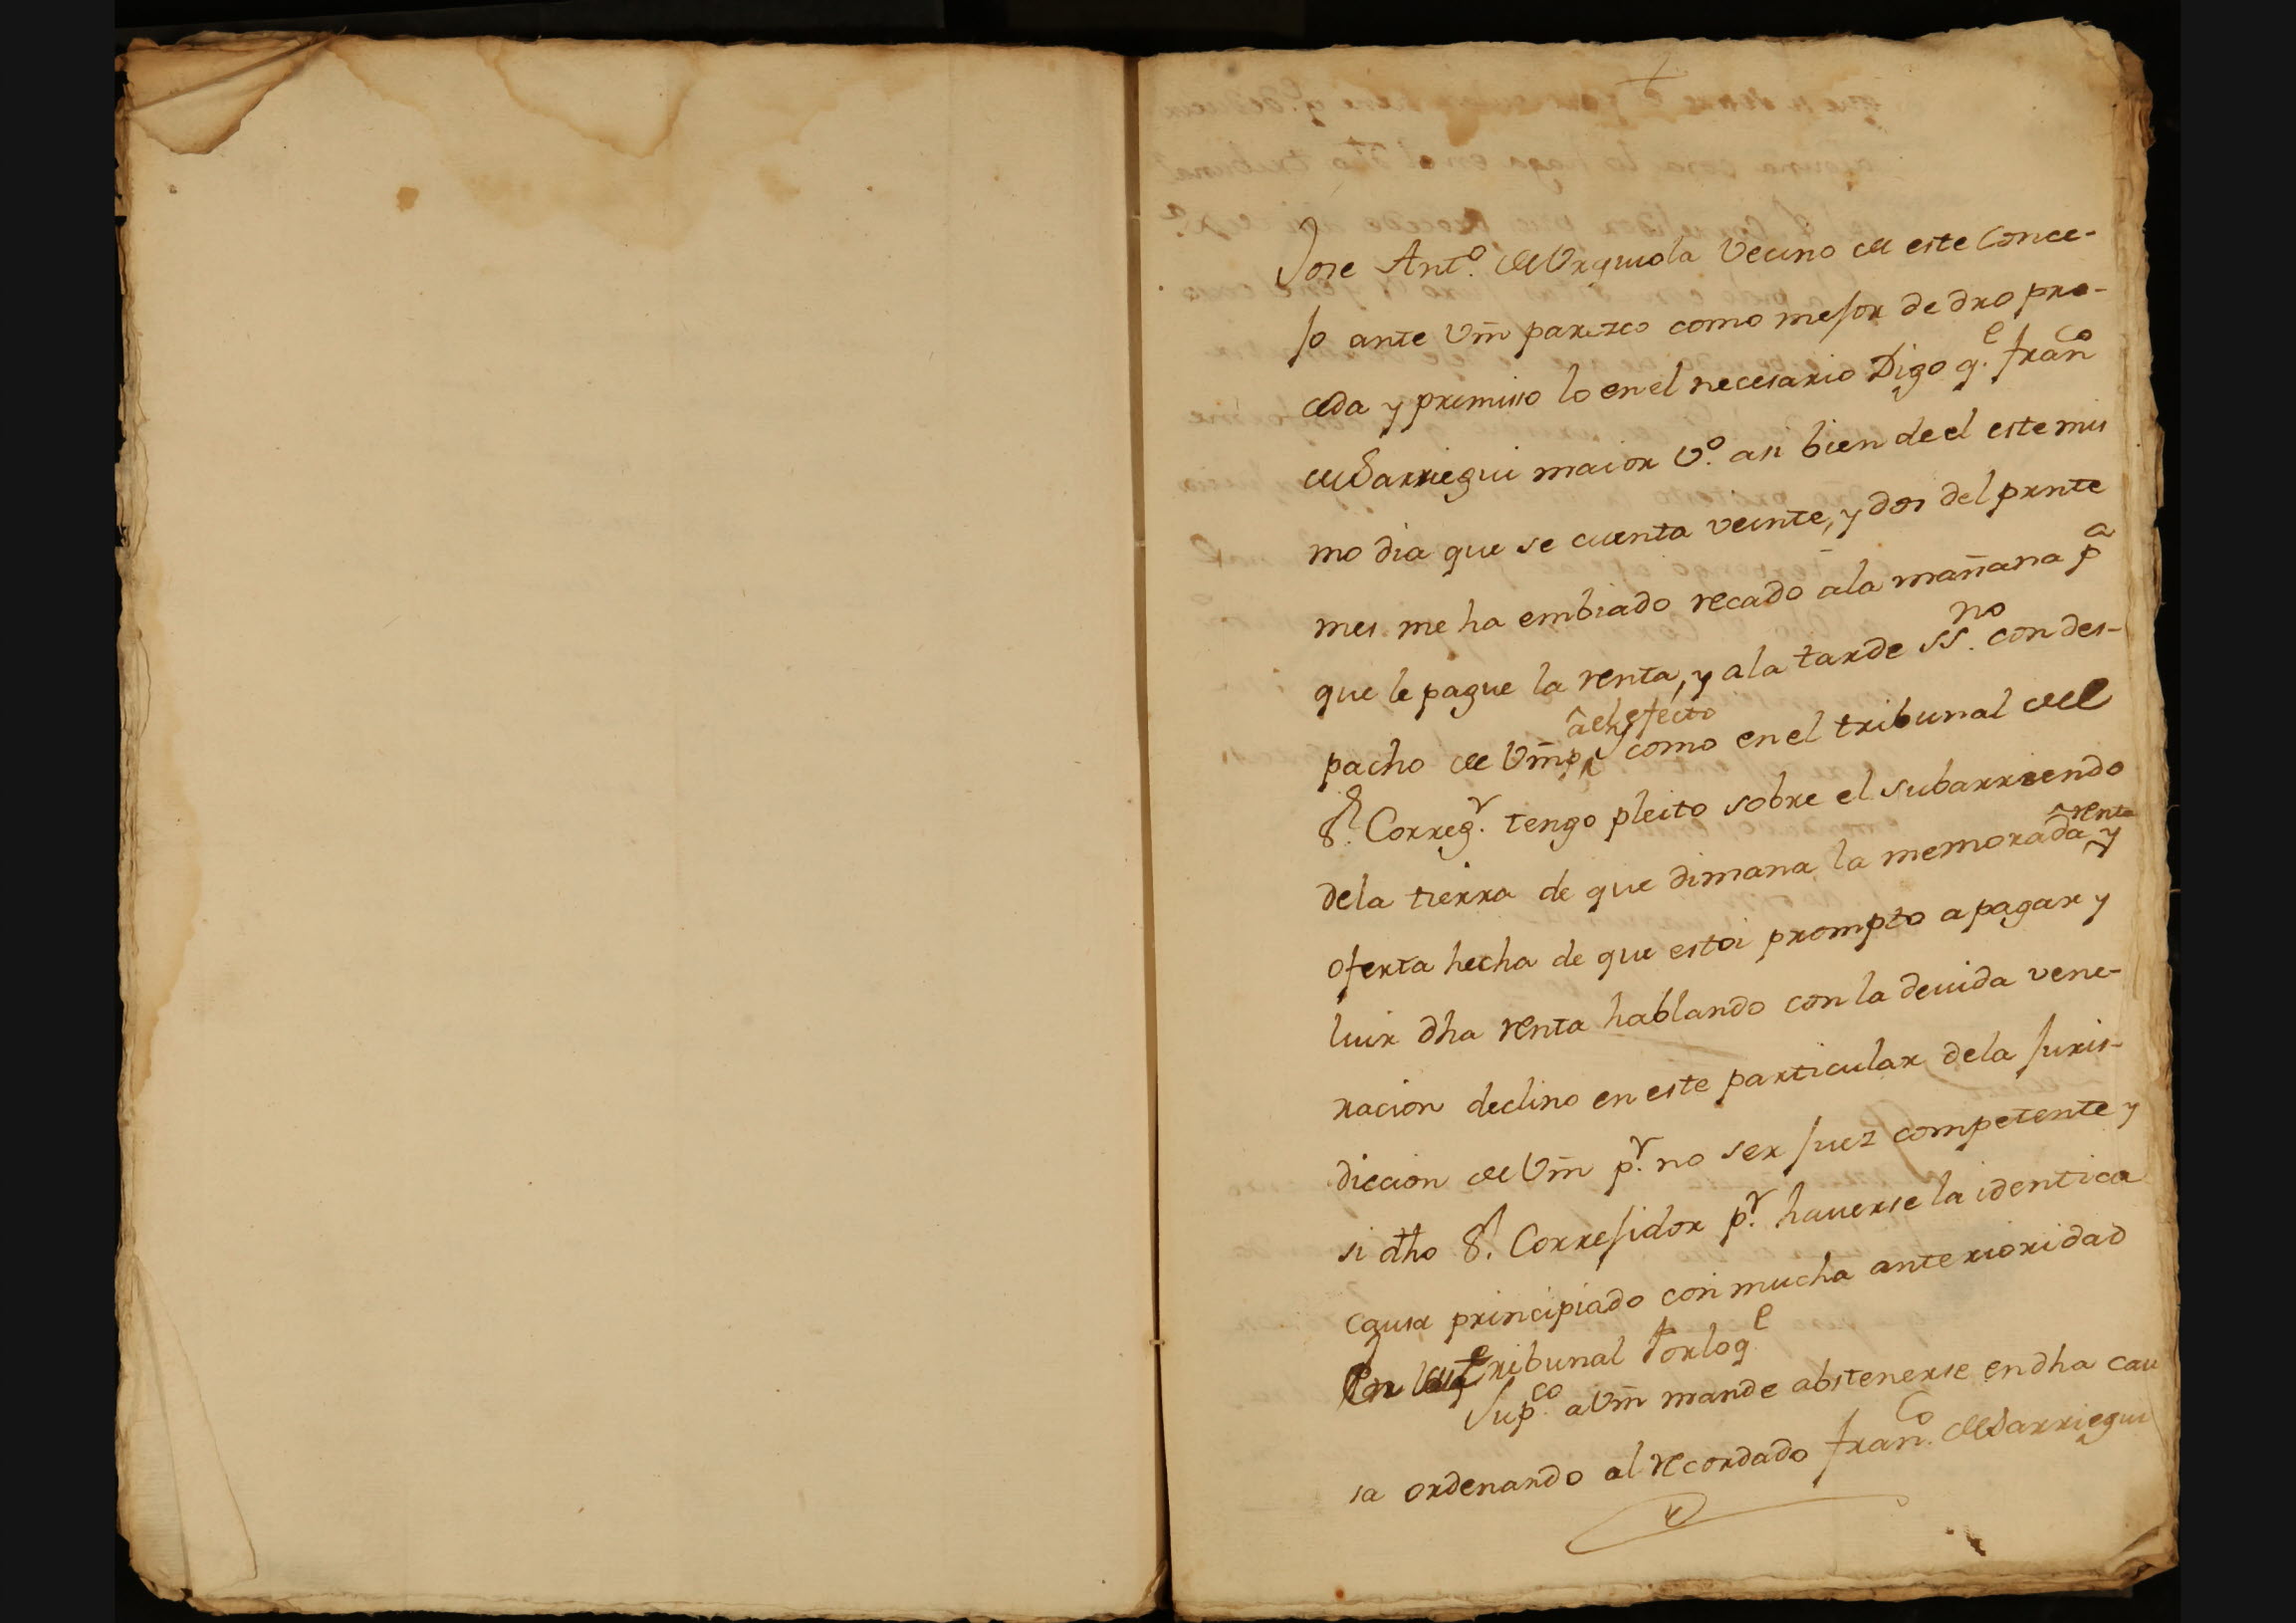 Jose Antº. de Vrquiola Vecino de este Conce-
jo ante Vm̄ parezco como mejor de dro pro-
ceda y premisso lo en el necesario Digo q.e franco
de Sarriegui maior vº. asi bien de el este mis
mo dia que se cuenta veinte, y dos del prnte
mes me ha embiado recado ala mañana pa
que le pague la renta, y ala tarde ss.no con des-
pacho de Vm̄ pr â el efecto como en el tribunal del
Sr. Correg.r tengo pleito sobre el subarriendo
dela tierra de que dimana la memorada renta y
oferta hecha de que estoi prompto a pagar y
luir dha renta hablando con la deuida vene-
racion declino en este particular dela Juris-
diccion de Vm̄ p.r no ser Juez competente y
si dho Sr. Correjidor p.r hauerse la identica
causa principiado con mucha anterioridad
En su tribunal Porloqe
Sup.co a Vm̄ mande abstenerse en dha cau
sa ordenando al recordado franco. de Sarriegui